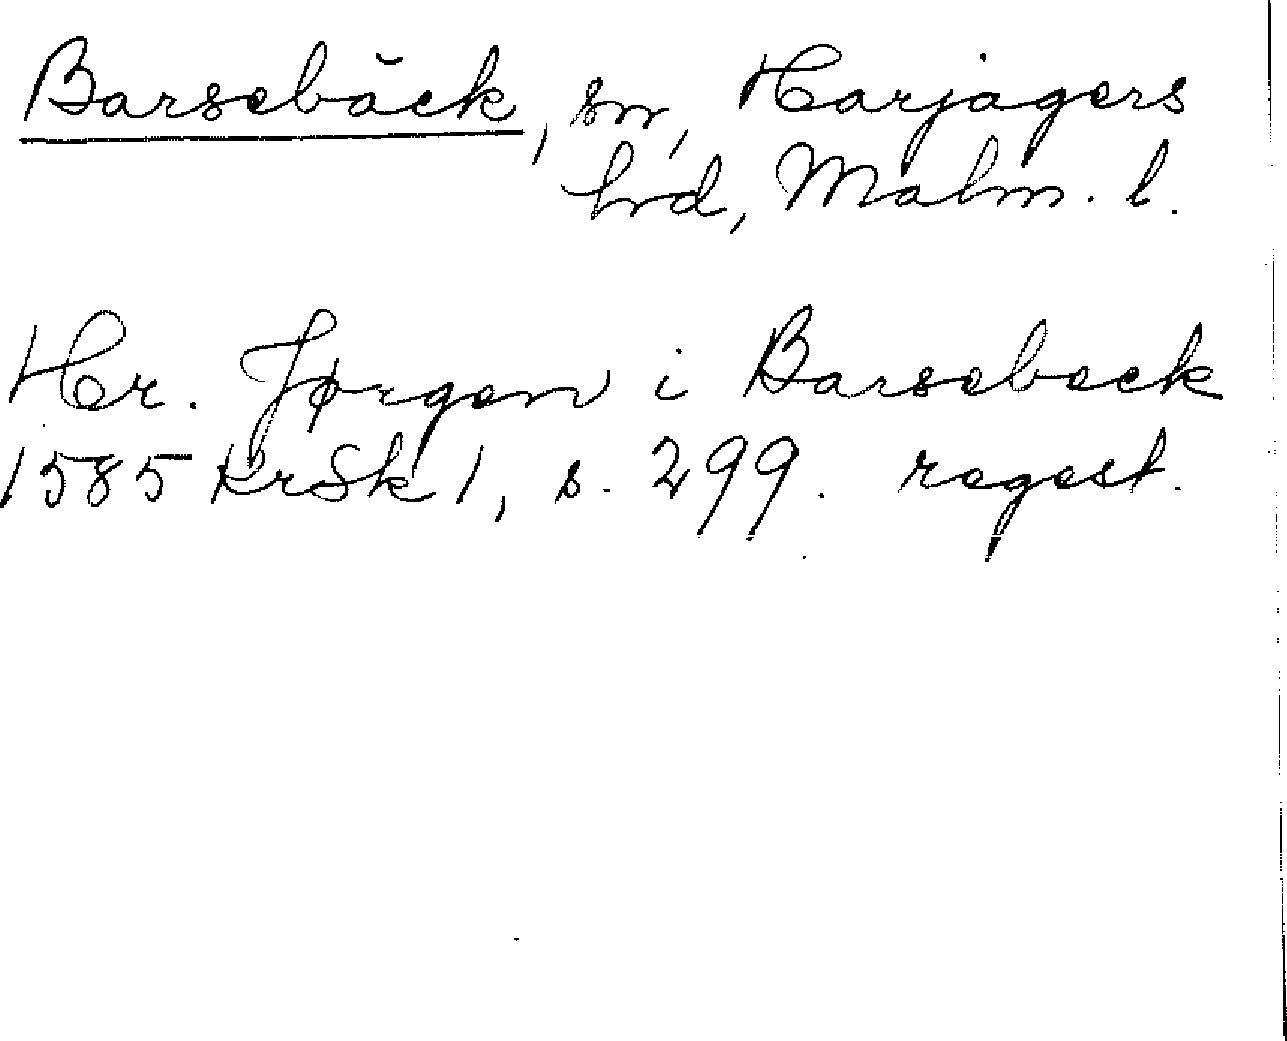 Barsebäck, sn, Harjagers
hrd, Malm. l.
Hr. Jørgen i Barsebeck
1585 KrSk 1, s. 299. regest.